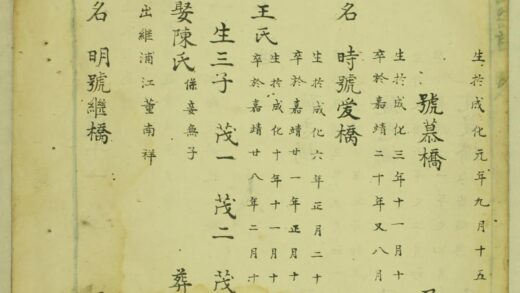 生於成化元年九月十五
號慕橋
生於成化三年十一月十
卒於嘉靖二十年又八月
名 時號愛橋
生於成化六年正月二十
卒於嘉靖廿一年正月十
王氏
生於成化十年十一月十
卒於嘉靖廿八年二月十
生三子 茂一 茂二 茂
娶陳氏
係妾無子
葬
出繼浦江董南祥
名 明號繼橋